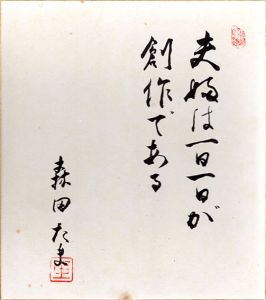 夫婦は一日一日が
創作である
森田たま